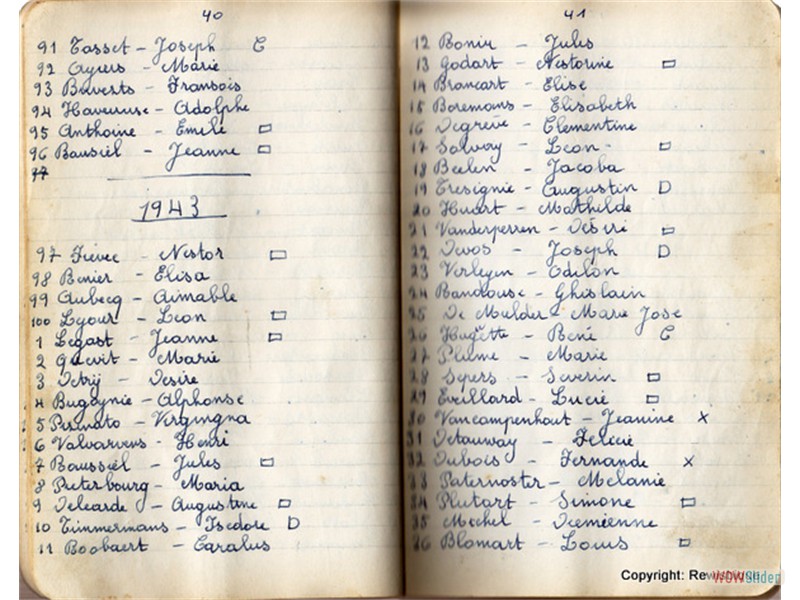 40
91 Tasset - Joseph C
92 Ayiers - Marie
93 Baverts - Fransois
94 Havereuse - Adolphe
95 Anthoine - Emile
96 Bausiel - Jeanne
97
1943
97 Fievec - Nestor
98 Benier - Elisa
99 Aubecq - Aimable
100 Lyour - Leon
1 Legast - Jeanne
2 Quevit - Marie
3 Detrij - Desire
4 Bugeynie - Alphonse
5 Perinato - Virgingna
6 Valvarvens - Henri
7 Baussiel - Jules
8 Pieterbourg - Maria
9 Delcarde - Augustine
10 Timmermans - Isedore D
11 Boobaert - Caralus
41
12 Bonir - Jules
13 Godart - Nestorine
14 Brancart - Elise
15 Boremans - Elisabeth
16 Degrève - Clementine
17 Salvay - Leon
18 Beelen - Jacoba
19 Tresignie - Augustin D
20 Huart - Mathilde
21 Vanderperren - Désiré
22 Devos - Joseph D
23 Verleyen - Odilon
24 Bandouse - Ghislain
25 De Mulder - Marie José
26 Hugette - René C
27 Plume - Marie
28 Sepers - Severin
29 Eveillard - Lucie
30 Vancampenhout - Jeanine x
31 Detauway - Felicie
32 Dubois - Fernande x
33 Paternoster - Melanie
34 Plutart - Simone
35 Mechel - Diemienne
36 Blomart - Louis
Copyright: Re
WOWSlider